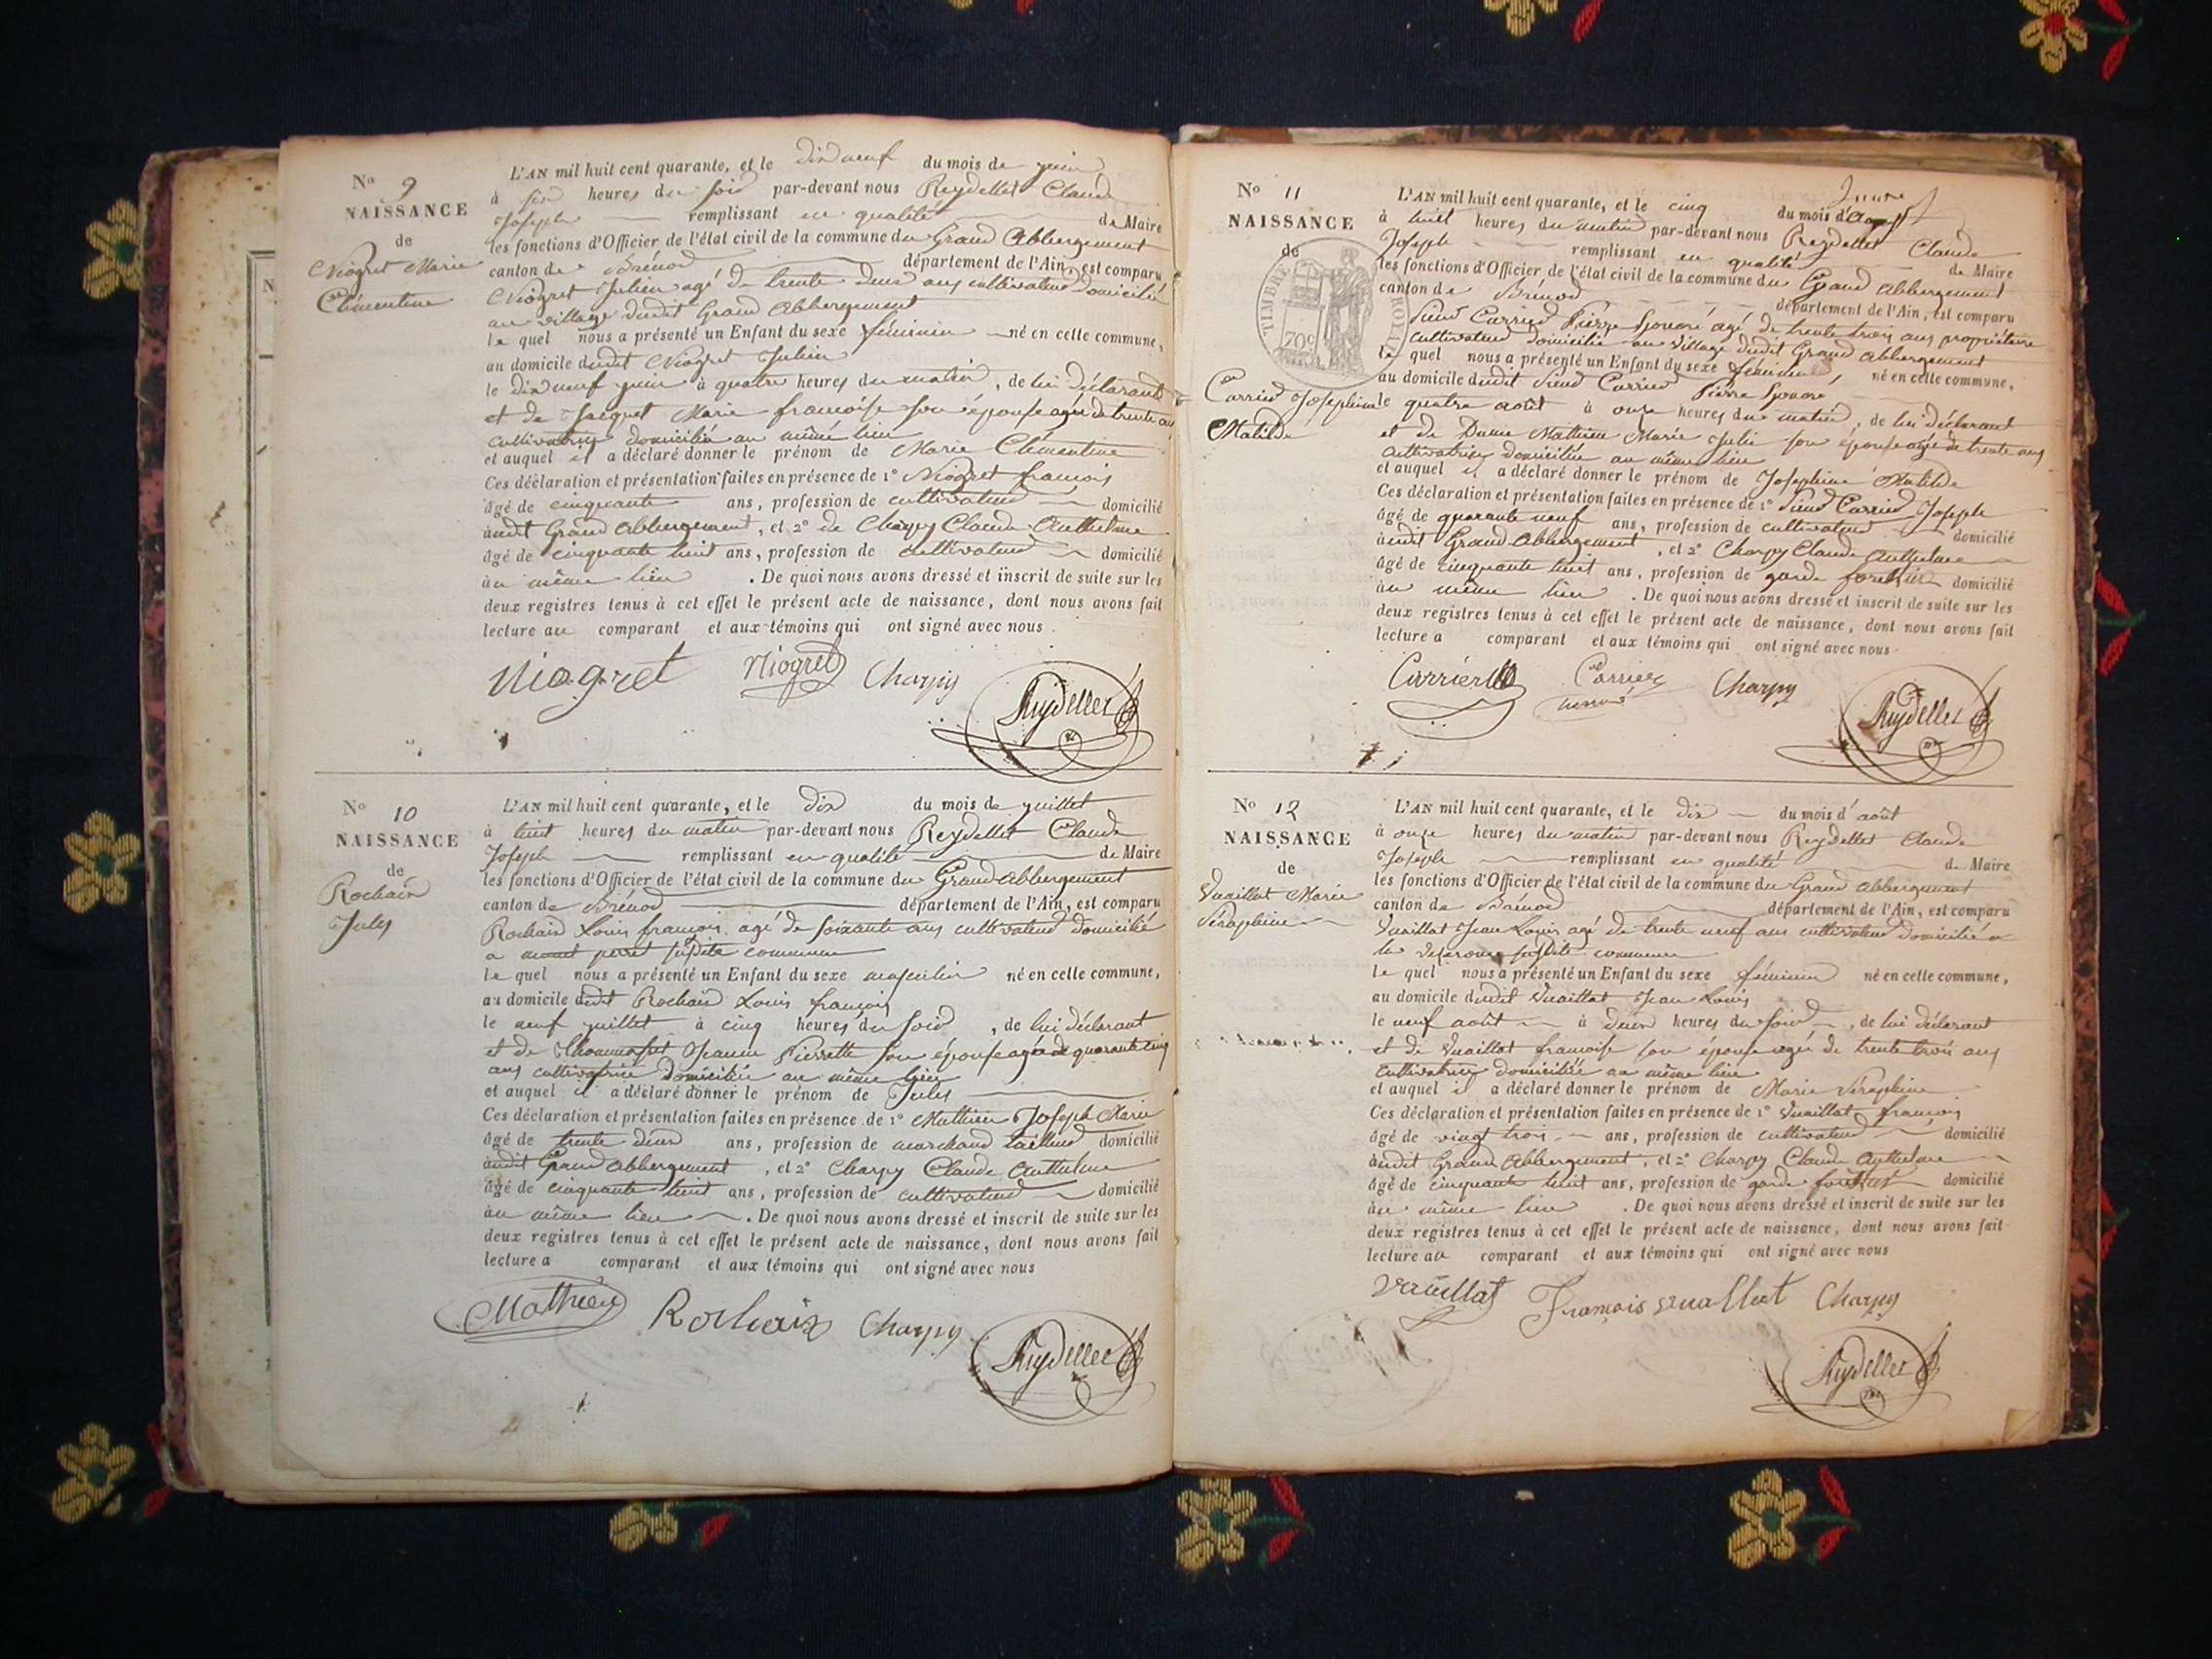 No 9
NAISSANCE
de
Niogret Marie
Clémentine
L'AN mil huit cent quarante, et le dix neuf du mois de juin
à six heures du soir par-devant nous Reydellet Claude
Joseph remplissant en qualité de Maire
les fonctions d'Officier de l'état civil de la commune du Grand Abbergement
canton de Brénod département de l'Ain, est comparu
Niogret Julien agé de trente deux ans cultivateur domicilié
au village dudit Grand Abbergement
le quel nous a présenté un Enfant du sexe féminin né en cette commune,
au domicile dudit Niogret Julien
le dix neuf juin à quatre heures du matin, de lui déclarant
et de Jacquet Marie françoise son épouse agée de trente ans
cultivatrice domiciliée au même lieu
et auquel il a déclaré donner le prénom de Marie Clémentine
Ces déclaration et présentation faites en présence de 1° Niogret françois
âgé de cinquante ans, profession de cultivateur domicilié
audit Grand Abbergement, et 2° de Charpy Claude Anthelme
âgé de cinquante huit ans, profession de cultivateur domicilié
au même lieu. De quoi nous avons dressé et inscrit de suite sur les
deux registres tenus à cet effet le présent acte de naissance, dont nous avons fait
lecture au comparant et aux témoins qui ont signé avec nous.
Niogret Niogret Charpy Reydellet
No 10
NAISSANCE
de
Rochaix
Jules
L'AN mil huit cent quarante, et le dix du mois de juillet
à huit heures du matin par-devant nous Reydellet Claude
Joseph remplissant en qualité de Maire
les fonctions d'Officier de l'état civil de la commune du Grand Abbergement
canton de Brénod département de l'Ain, est comparu
Rochaix Louis françois agé de soixante ans cultivateur domicilié
a susdite commune
le quel nous a présenté un Enfant du sexe masculin né en cette commune,
au domicile dudit Rochaix Louis françois
le neuf juillet à cinq heures du soir, de lui déclarant
et de Jeanne Pierrette son épouse agée de quarante cinq
ans cultivatrice domiciliée au même lieu
et auquel il a déclaré donner le prénom de Jules
Ces déclaration et présentation faites en présence de 1° Mathieu Joseph Marie
âgé de trente deux ans, profession de marchand tailleur domicilié
audit Grand Abbergement, et 2° Charpy Claude Anthelme
âgé de cinquante huit ans, profession de cultivateur domicilié
au même lieu. De quoi nous avons dressé et inscrit de suite sur les
deux registres tenus à cet effet le présent acte de naissance, dont nous avons fait
lecture a comparant et aux témoins qui ont signé avec nous
Mathieu Rochaix Charpy Reydellet
No 11
NAISSANCE
de
TIMBRE ROYAL
70c
Carrier Josephine
Matilde
L'AN mil huit cent quarante, et le cinq du mois d'Août
à huit heures du matin par-devant nous Reydellet Claude
Joseph remplissant en qualité de Maire
les fonctions d'Officier de l'état civil de la commune du Grand Abbergement
canton de Brénod département de l'Ain, est comparu
Sieur Carrier Pierre Honoré agé de trente trois ans propriétaire
cultivateur domicilié au village dudit Grand Abbergement
le quel nous a présenté un Enfant du sexe féminin né en cette commune,
au domicile dudit Sieur Carrier Pierre Honoré
le quatre août à onze heures du matin, de lui déclarant
et de Dame Mathieu Marie Julie son épouse agée de trente ans
cultivatrice domiciliée au même lieu
et auquel il a déclaré donner le prénom de Joséphine Matilde
Ces déclaration et présentation faites en présence de 1° Sieur Carrier Joseph
âgé de quarante neuf ans, profession de cultivateur domicilié
audit Grand Abbergement, et 2° Charpy Claude Anthelme
âgé de cinquante huit ans, profession de garde forestier domicilié
au même lieu. De quoi nous avons dressé et inscrit de suite sur les
deux registres tenus à cet effet le présent acte de naissance, dont nous avons fait
lecture a comparant et aux témoins qui ont signé avec nous.
Carrier Carrier Charpy Reydellet
No 12
NAISSANCE
de
Vuaillat Marie
Séraphine
L'AN mil huit cent quarante, et le dix du mois d'août
à onze heures du matin par-devant nous Reydellet Claude
Joseph remplissant en qualité de Maire
les fonctions d'Officier de l'état civil de la commune du Grand Abbergement
canton de Brénod département de l'Ain, est comparu
Vuaillat Jean Louis agé de trente neuf ans cultivateur domicilié a
susdite commune
le quel nous a présenté un Enfant du sexe féminin né en cette commune,
au domicile dudit Vuaillat Jean Louis
le neuf août à deux heures du soir, de lui déclarant
et de Vuaillat françoise son épouse agée de trente trois ans
cultivatrice domiciliée au même lieu
et auquel il a déclaré donner le prénom de Marie Séraphine
Ces déclaration et présentation faites en présence de 1° Vuaillat françois
âgé de vingt trois ans, profession de cultivateur domicilié
audit Grand Abbergement, et 2° Charpy Claude Anthelme
âgé de cinquante huit ans, profession de garde forestier domicilié
au même lieu. De quoi nous avons dressé et inscrit de suite sur les
deux registres tenus à cet effet le présent acte de naissance, dont nous avons fait
lecture au comparant et aux témoins qui ont signé avec nous
Vuaillat François Vuaillat Charpy Reydellet